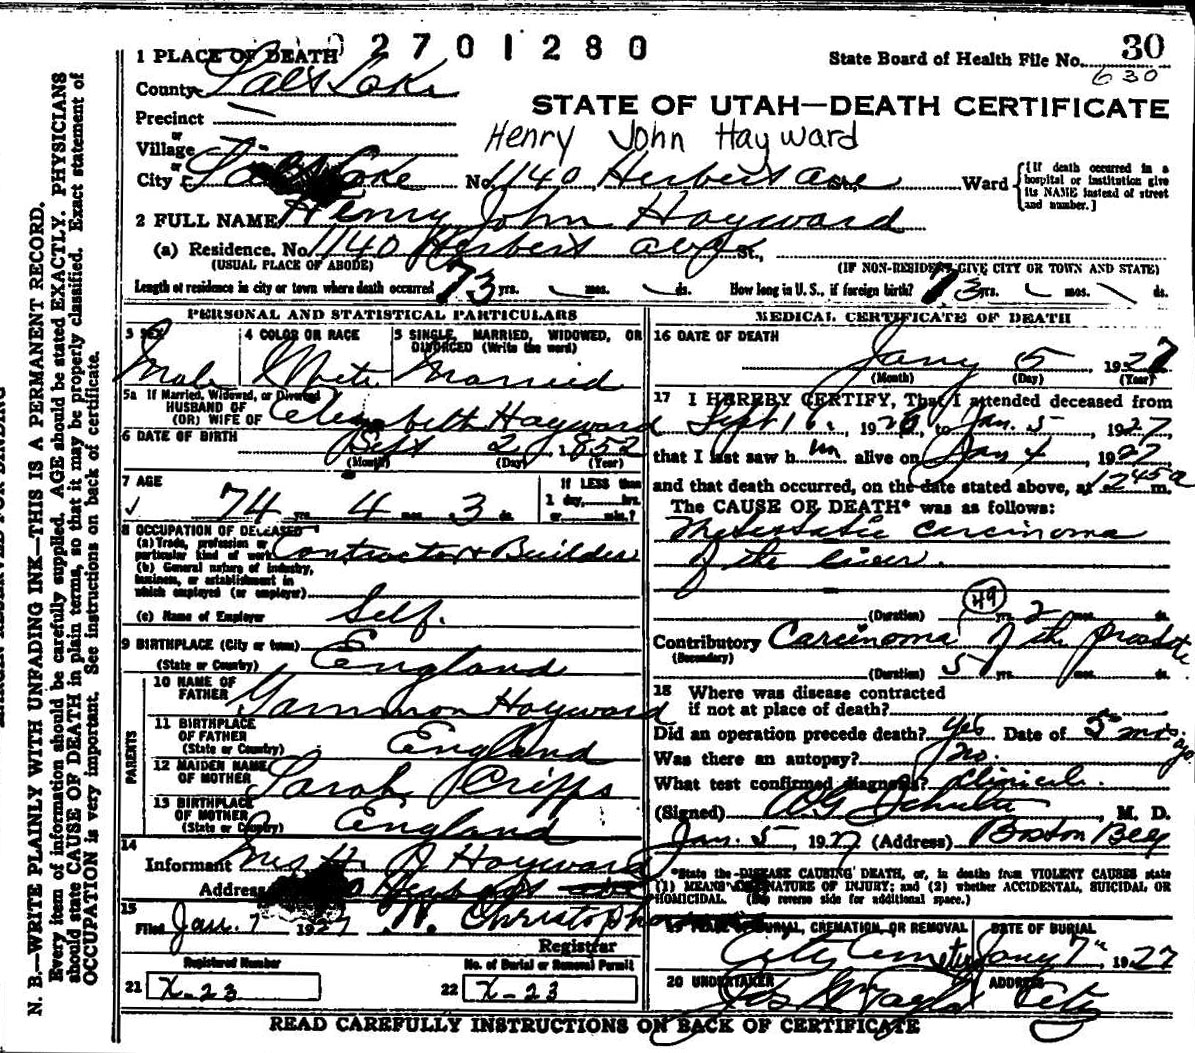 2701280
1 PLACE OF DEATH
State Board of Health File No. 30
630
County Salt Lake
STATE OF UTAH—DEATH CERTIFICATE
Precinct
Henry John Hayward
or
Village
or
City Salt Lake No. 1140 Herbert ave St., Ward
[If death occurred in a hospital or institution give its NAME instead of street and number.]
2 FULL NAME Henry John Hayward
(a) Residence. No. 1140 Herbert ave St.,
(USUAL PLACE OF ABODE) (IF NON-RESIDENT GIVE CITY OR TOWN AND STATE)
Length of residence in city or town where death occurred 73 yrs. mos. ds. How long in U. S., if foreign birth? 73 yrs. mos. ds.
PERSONAL AND STATISTICAL PARTICULARS
3 SEX 4 COLOR OR RACE 5 SINGLE, MARRIED, WIDOWED, OR DIVORCED (Write the word)
Male White Married
5a If Married, Widowed, or Divorced
HUSBAND OF
(OR) WIFE OF Elizabeth Hayward
6 DATE OF BIRTH
Sept 2, 1852
(Month) (Day) (Year)
7 AGE If LESS than
1 day, hrs.
74 yrs. 4 mos. 3 ds. or min.?
8 OCCUPATION OF DECEASED
(a) Trade, profession or
particular kind of work Contractor & Builder
(b) General nature of industry,
business, or establishment in
which employed (or employer)
(c) Name of Employer Self.
9 BIRTHPLACE (City or town)
(State or Country) England
PARENTS
10 NAME OF
FATHER Gammon Hayward
11 BIRTHPLACE
OF FATHER
(State or Country) England
12 MAIDEN NAME
OF MOTHER Sarah Cripps
13 BIRTHPLACE
OF MOTHER
(State or Country) England
14
Informant Mrs H. J Hayward
Address Herbert ave
15
Filed Jan. 7 1927
Registrar
Registered Number No. of Burial or Removal Permit
21 X-23 22 X-23
MEDICAL CERTIFICATE OF DEATH
16 DATE OF DEATH
Jany 5 1927
(Month) (Day) (Year)
17 I HEREBY CERTIFY, That I attended deceased from
Sept 16, 1926, to Jan. 5, 1927
that I last saw h im alive on Jan 4, 1927
and that death occurred, on the date stated above, at 1245 a m.
The CAUSE OF DEATH* was as follows:
Metastatic Carcinoma
of the liver.
49
(Duration) yrs. 2 mos. ds.
Contributory Carcinoma of the prostate
(Secondary)
(Duration) 5 yrs. mos. ds.
18 Where was disease contracted
if not at place of death?
Did an operation precede death? yes Date of 5 mos. ago.
Was there an autopsy? no.
What test confirmed diagnosis? Clinical.
(Signed) , M. D.
Jan. 5, 1927 (Address) Boston Bldg
*State the DISEASE CAUSING DEATH, or, in deaths from VIOLENT CAUSES state
(1) MEANS AND NATURE OF INJURY; and (2) whether ACCIDENTAL, SUICIDAL OR
HOMICIDAL. (See reverse side for additional space.)
19 PLACE OF BURIAL, CREMATION, OR REMOVAL DATE OF BURIAL
City Cemetery Jany 7th, 1927
20 UNDERTAKER ADDRESS
Taylor City
READ CAREFULLY INSTRUCTIONS ON BACK OF CERTIFICATE
N. B.—WRITE PLAINLY WITH UNFADING INK—THIS IS A PERMANENT RECORD.
Every item of information should be carefully supplied. AGE should be stated EXACTLY. PHYSICIANS
should state CAUSE OF DEATH in plain terms, so that it may be properly classified. Exact statement of
OCCUPATION is very important. See instructions on back of certificate.